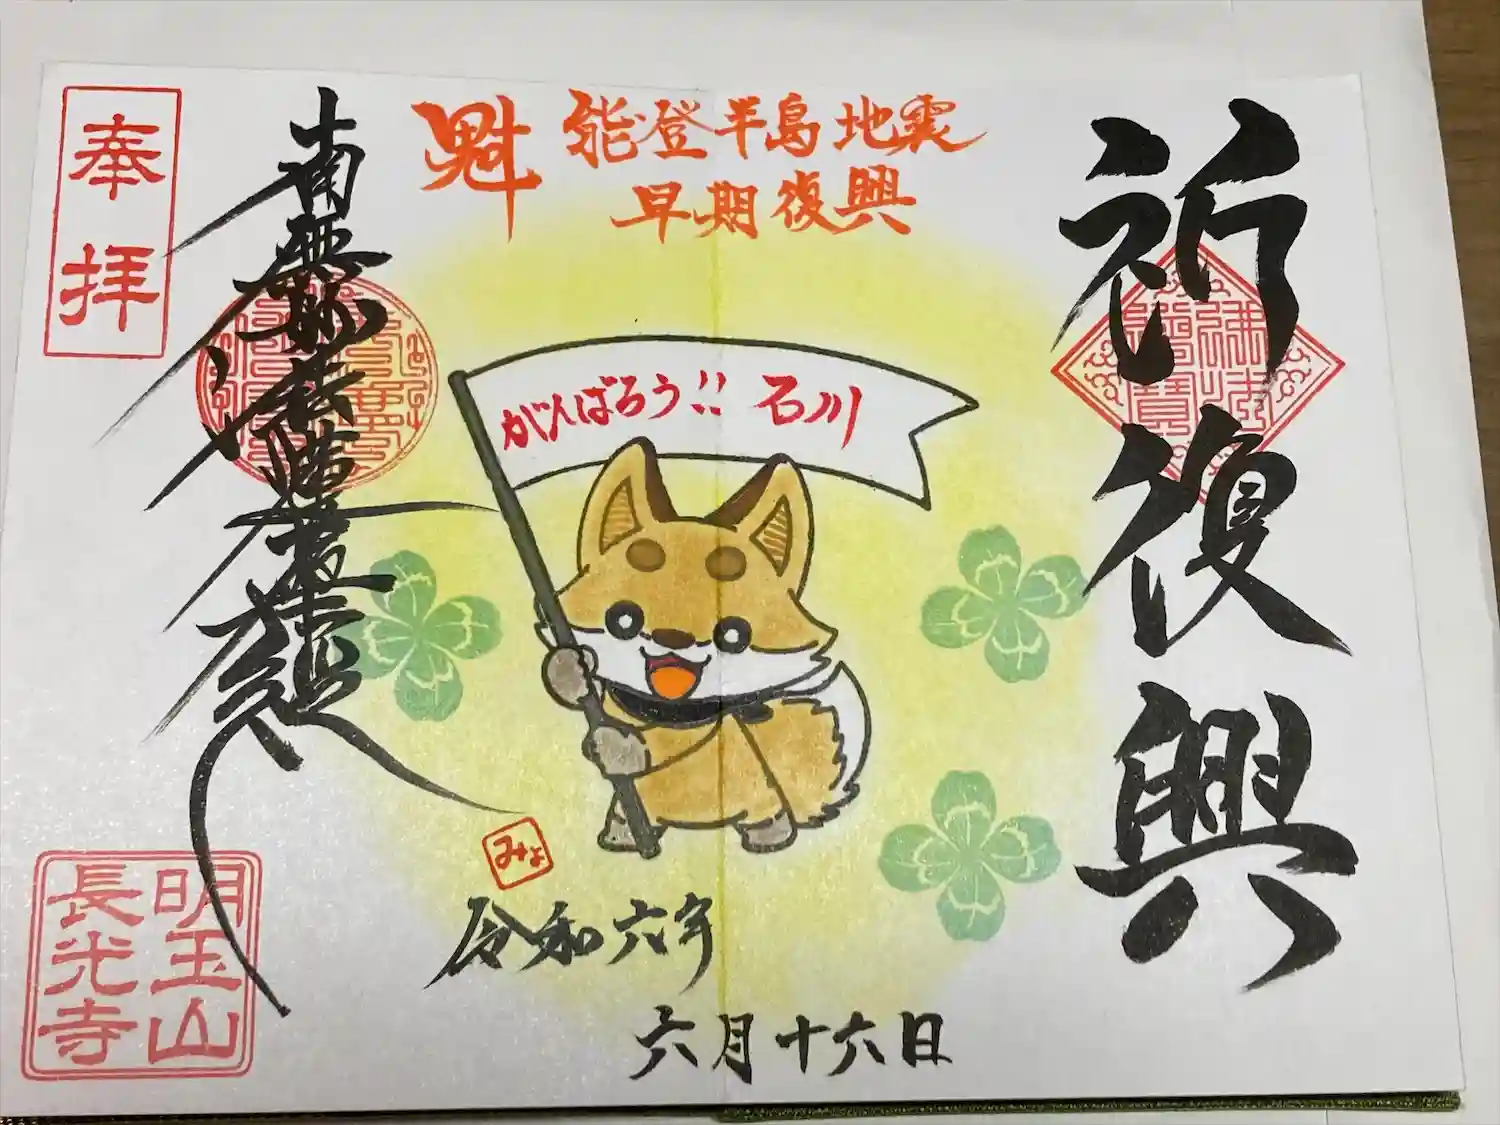 祈復興
魁
能登半島地震
早期復興
がんばろう!! 石川
南無妙法蓮華経
奉拝
みょ
令和六年
六月十六日
明玉山
長光寺